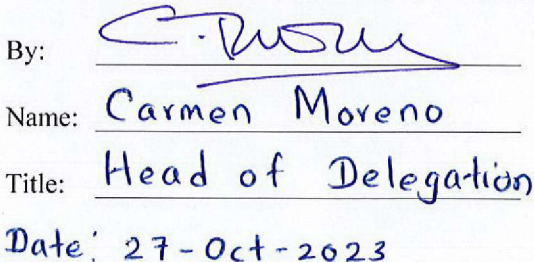 By:
Name: Carmen Moreno
Title: Head of Delegation
Date: 27-Oct-2023